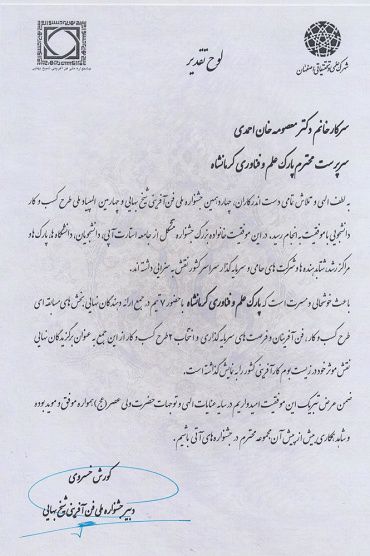 شهرک علمی و تحقیقاتی اصفهان
جشنواره ملی فن آفرینی شیخ بهایی
لوح تقدیر
سرکار خانم دکتر معصومه خان احمدی
سرپرست محترم پارک علم و فناوری کرمانشاه
به لطف الهی و تلاش تمامی دست اندرکاران، چهاردهمین جشنواره ملی فن آفرینی شیخ بهایی و چهارمین المپیاد ملی طرح کسب و کار
دانشجویی با موفقیت به انجام رسید. در این موفقیت خانواده بزرگ جشنواره متشکل از جامعه استارت آپی، دانشجویان، دانشگاه ها، پارک ها و
مراکز رشد، شتاب دهنده ها و شرکت های حامی و سرمایه گذار سراسر کشور نقش به سزایی داشته اند.
باعث خوشحالی و مسرت است که پارک علم و فناوری کرمانشاه با حضور ۷ تیم در جمع ارائه دهندگان نهایی بخش های مسابقه ای
طرح کسب و کار، فن آفرینان و فرصت های سرمایه گذاری و انتخاب ۲ طرح کسب و کار از این جمع به عنوان برگزیدگان نهایی
نقش موثر خود در زیست بوم کارآفرینی کشور را به نمایش گذاشته است.
ضمن عرض تبریک این موفقیت امیدواریم در سایه عنایات الهی و توجهات حضرت ولی عصر (عج) همواره موفق و موید بوده
و شاهد همکاری بیش از پیش آن مجموعه محترم در جشنواره های آتی باشیم.
کورش خسروی
دبیر جشنواره ملی فن آفرینی شیخ بهایی